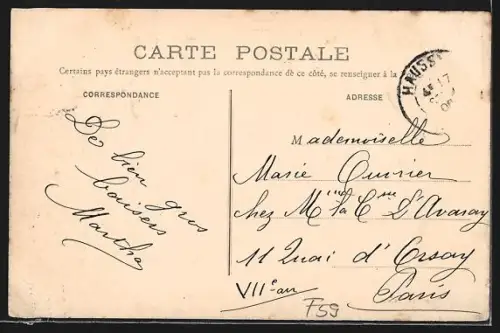 CARTE POSTALE
Certains pays étrangers n'acceptant pas la correspondance de ce côté, se renseigner à la
CORRESPONDANCE
ADRESSE
De bien gros
baisers
Martha
Mademoiselle
Marie Ouvrier
chez Mme la Ctsse d'Avaray
11 Quai d'Orsay
Paris
VIIe arr
F59
HAUSS
17